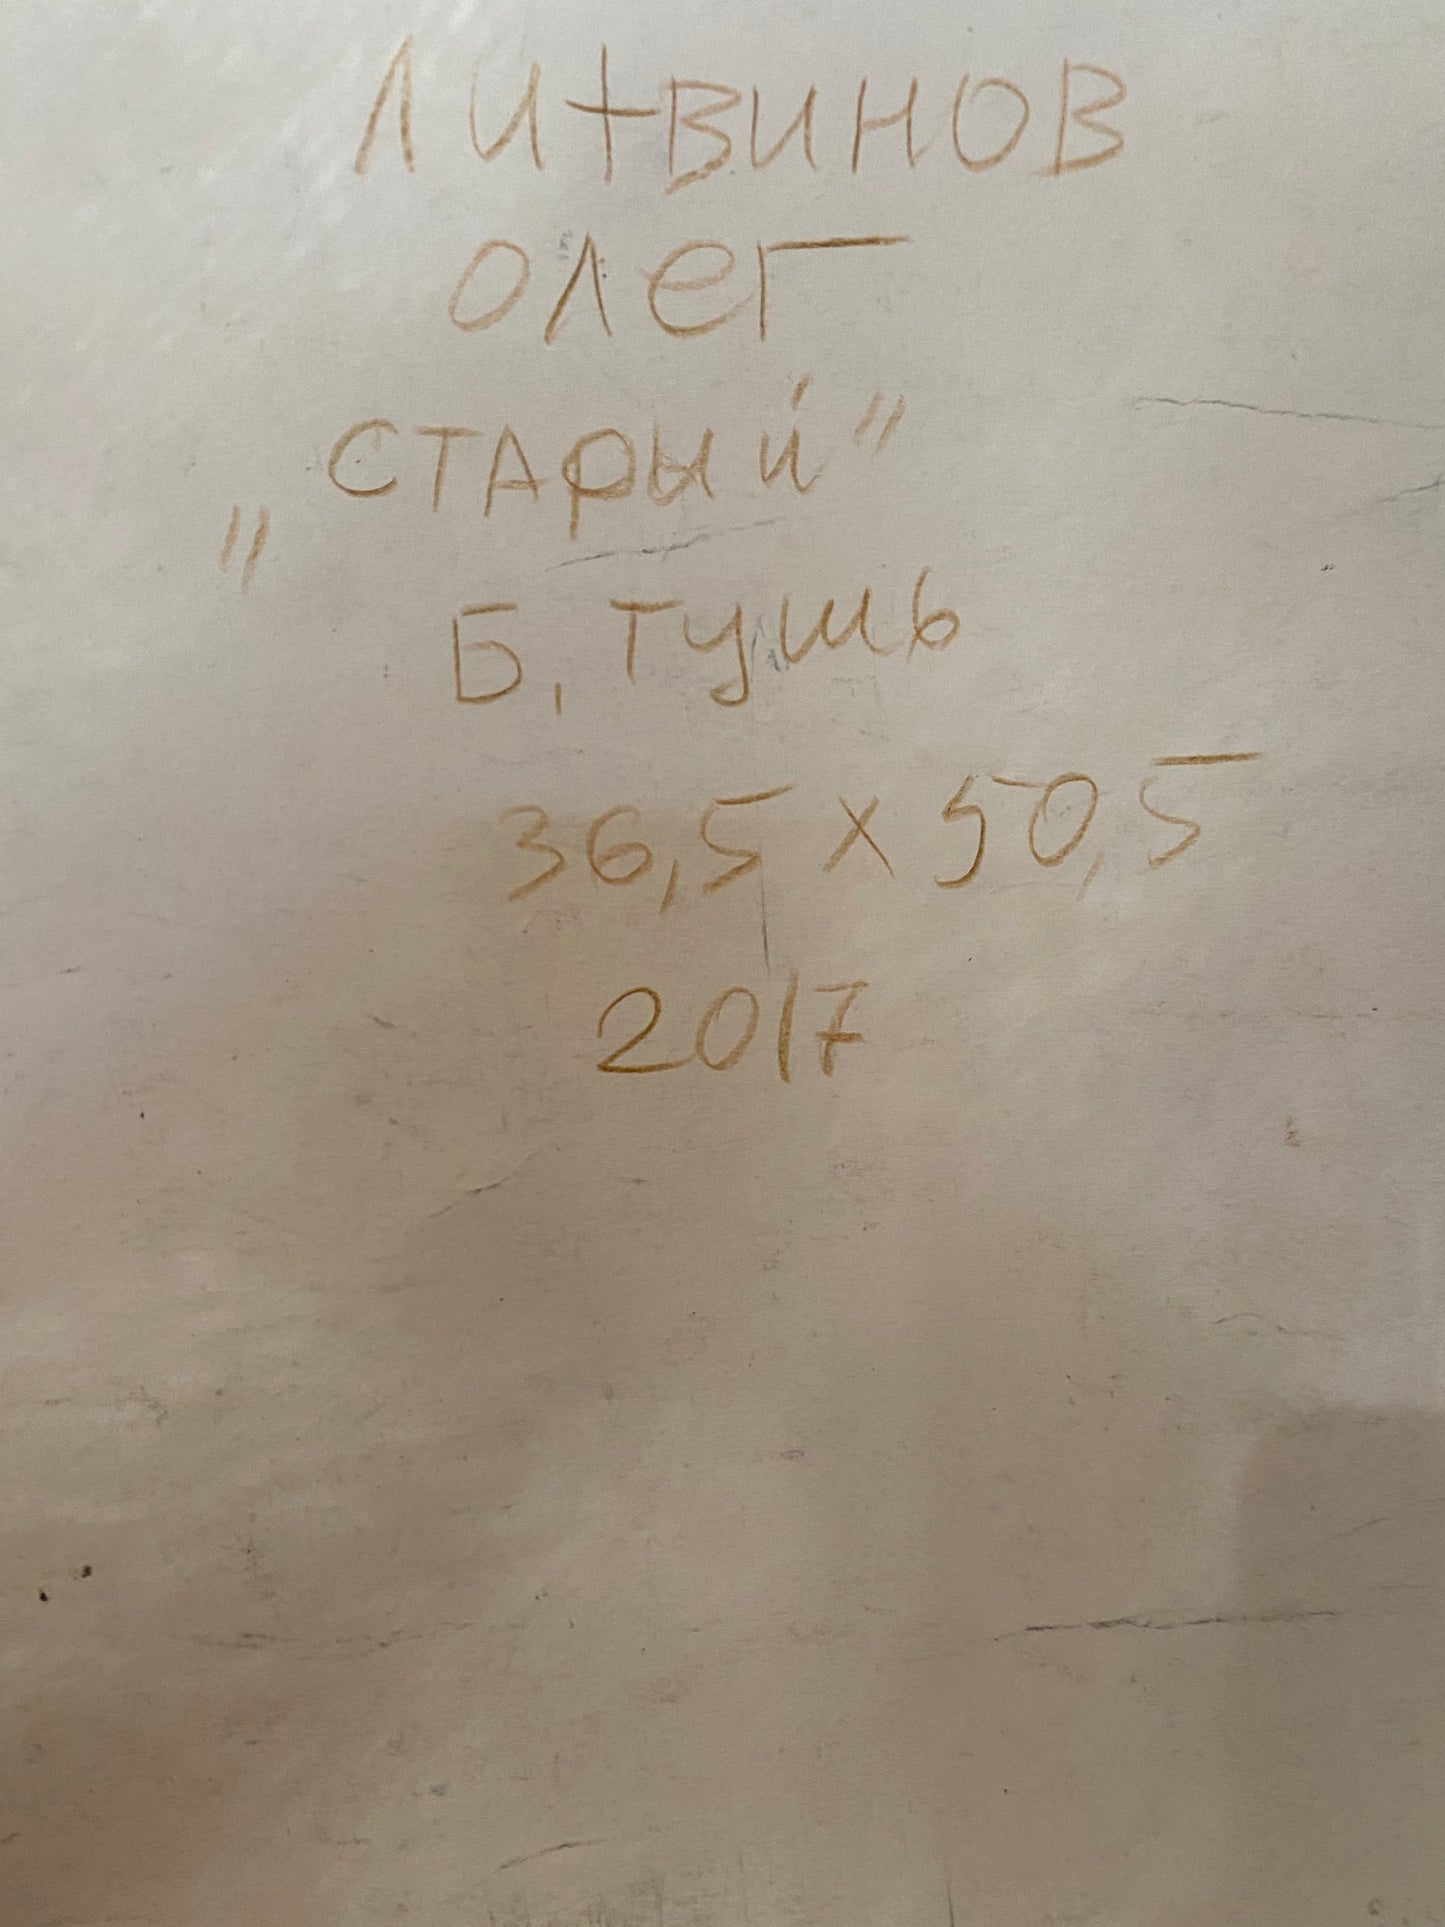 ЛИТВИНОВ
ОЛЕГ
„СТАРЫЙ"
Б, ТУШЬ
36,5 x 50,5
2017